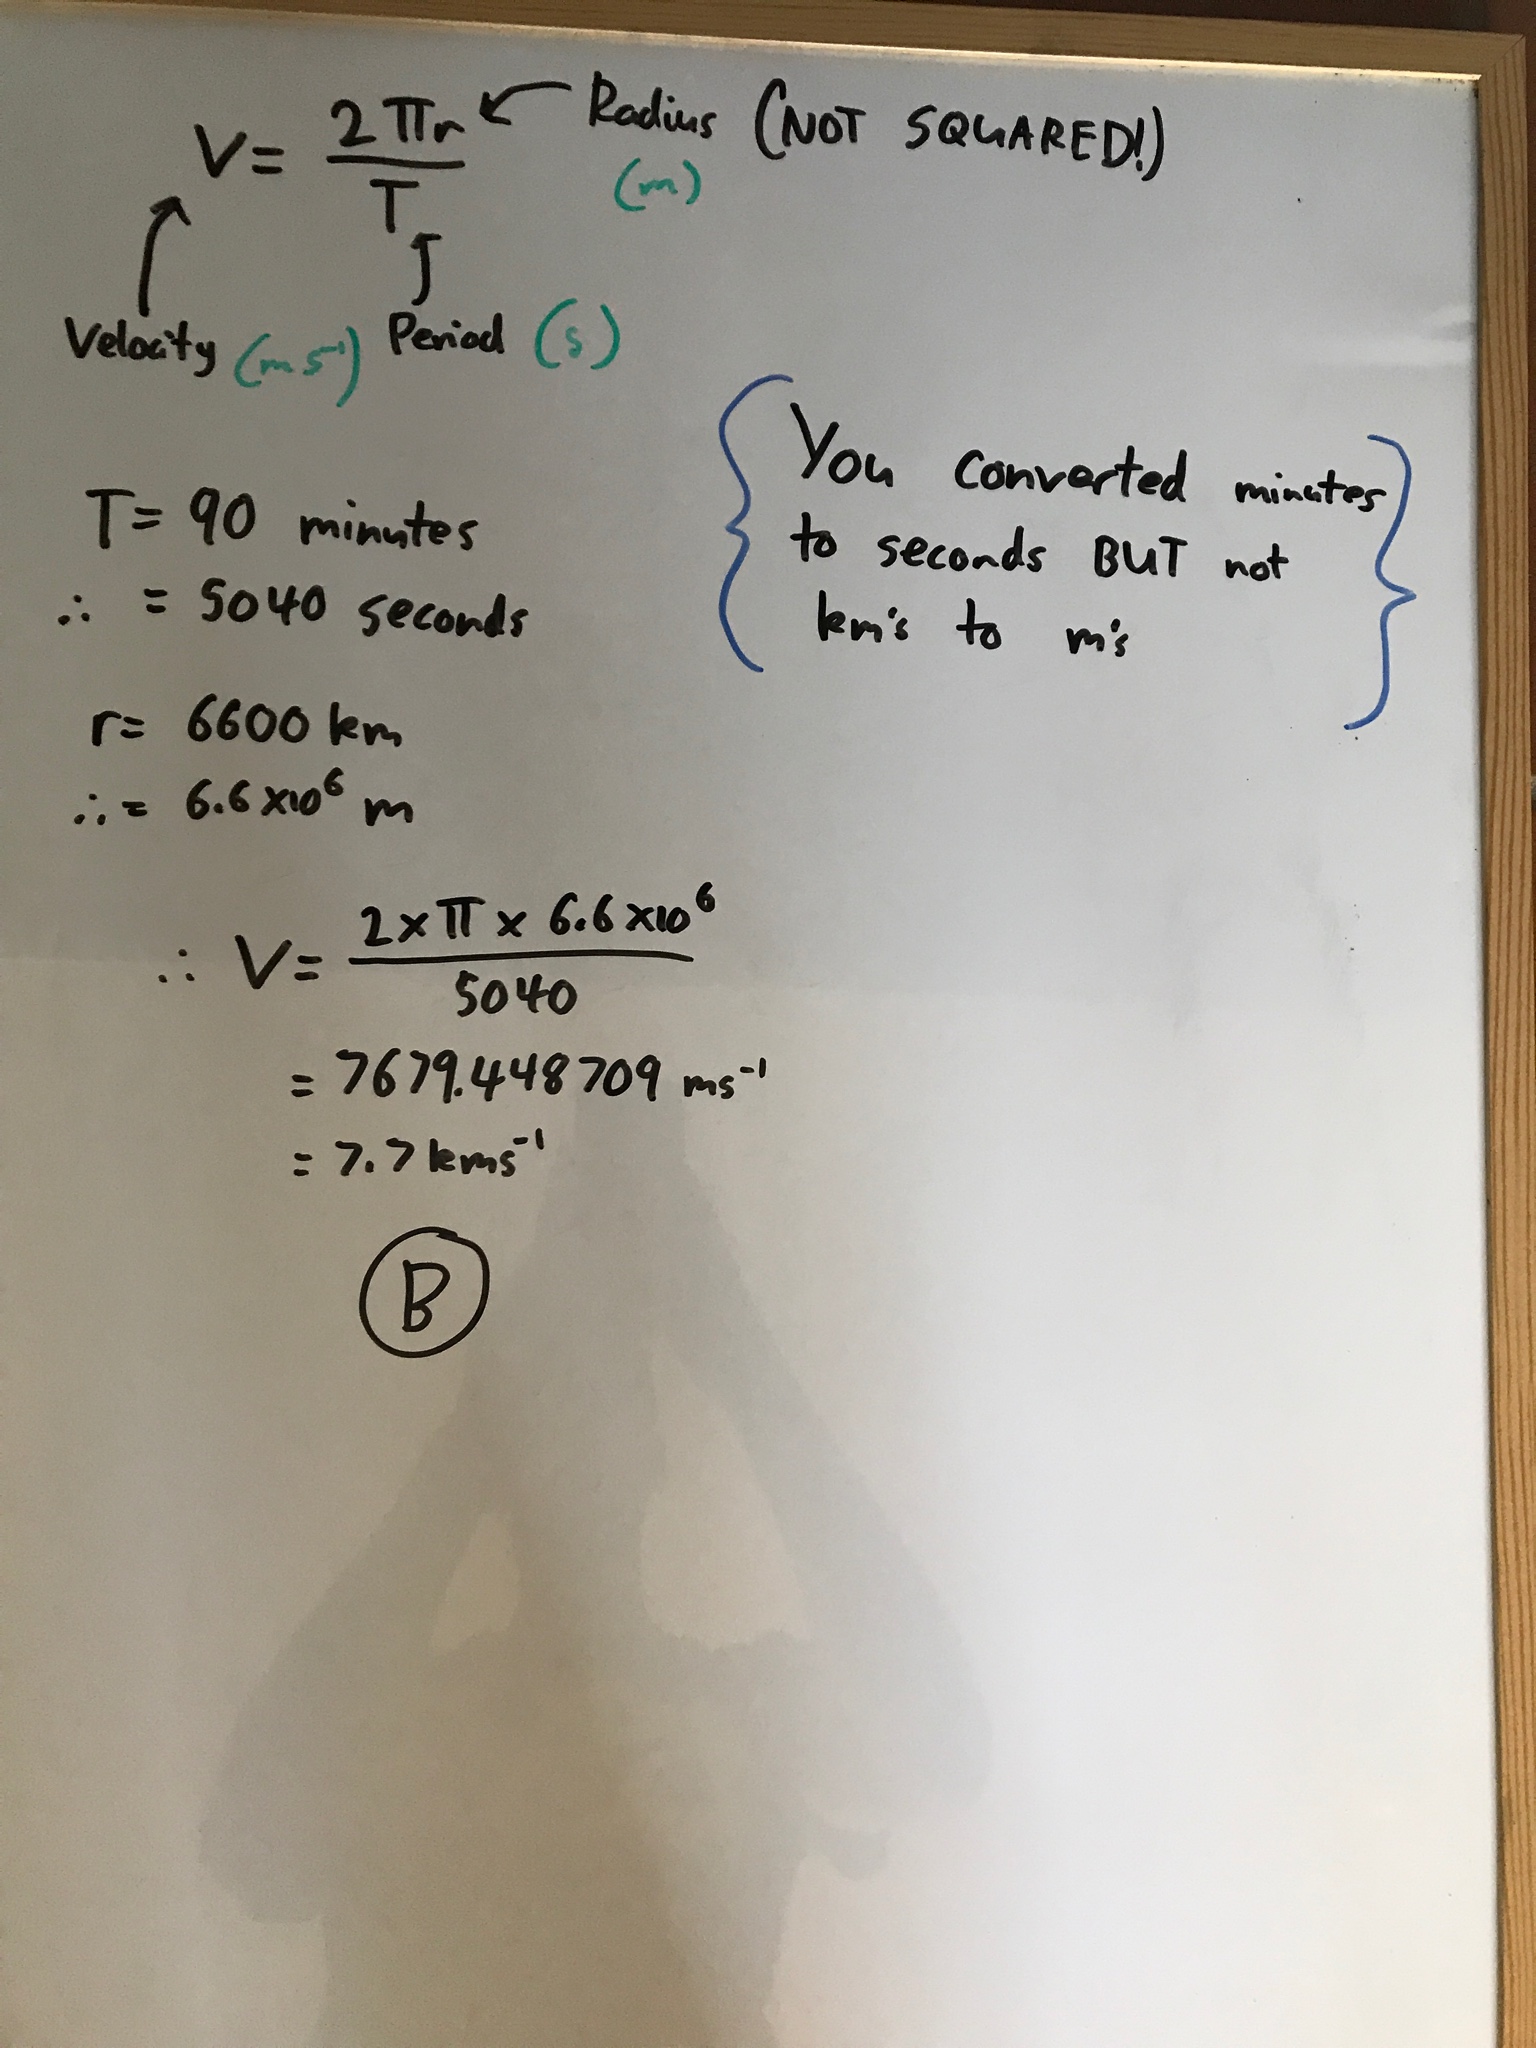 V = 2πr / T
Radius (NOT SQUARED!)
(m)
Velocity (ms⁻¹)
Period (s)
{ You converted minutes
to seconds BUT not
km's to m's }
T = 90 minutes
∴ = 5040 seconds
r = 6600 km
∴ = 6.6×10⁶ m
∴ V = 2 × π × 6.6×10⁶ / 5040
= 7679.448709 ms⁻¹
= 7.7 kms⁻¹
B